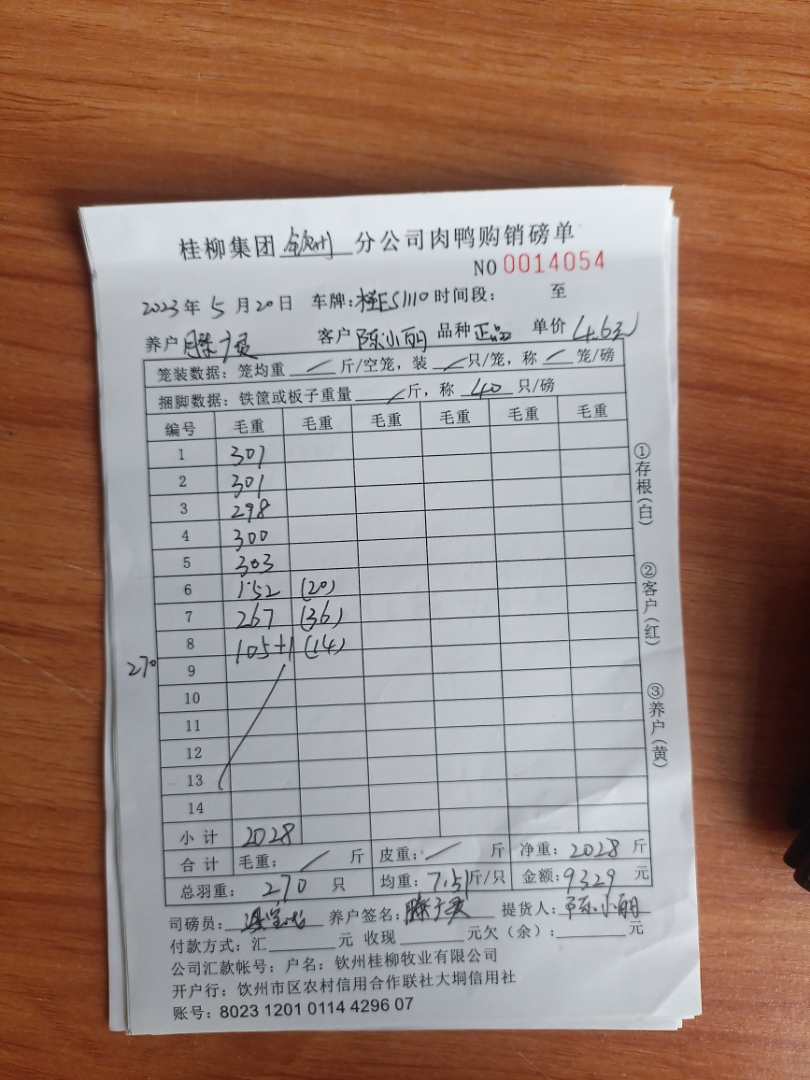 桂柳集团 钦州 分公司肉鸭购销磅单
NO 0014054
2023年 5 月 20 日 车牌:桂ES1110 时间段: 至
养户 客户 陈小丽 品种 正品 单价 4.6元
笼装数据: 笼均重 / 斤/空笼, 装 / 只/笼, 称 / 笼/磅
捆脚数据: 铁筐或板子重量 / 斤, 称 40 只/磅
编号 毛重 毛重 毛重 毛重 毛重 毛重
1 301
2 301
3 298
4 300
5 303
6 152 (20)
7 267 (36)
8 105+1 (14)
270
9
10
11
12
13
14
小 计 2028
合 计 毛重: / 斤 皮重: / 斤 净重: 2028 斤
总羽重: 270 只 均重: 7.51斤/只 金额: 9329 元
司磅员: 养户签名: 提货人: 陈小丽
付款方式: 汇 元 收现 元欠(余): 元
公司汇款帐号: 户名: 钦州桂柳牧业有限公司
开户行: 钦州市区农村信用合作联社大垌信用社
账号: 8023 1201 0114 4296 07
①存根(白)
②客户(红)
③养户(黄)